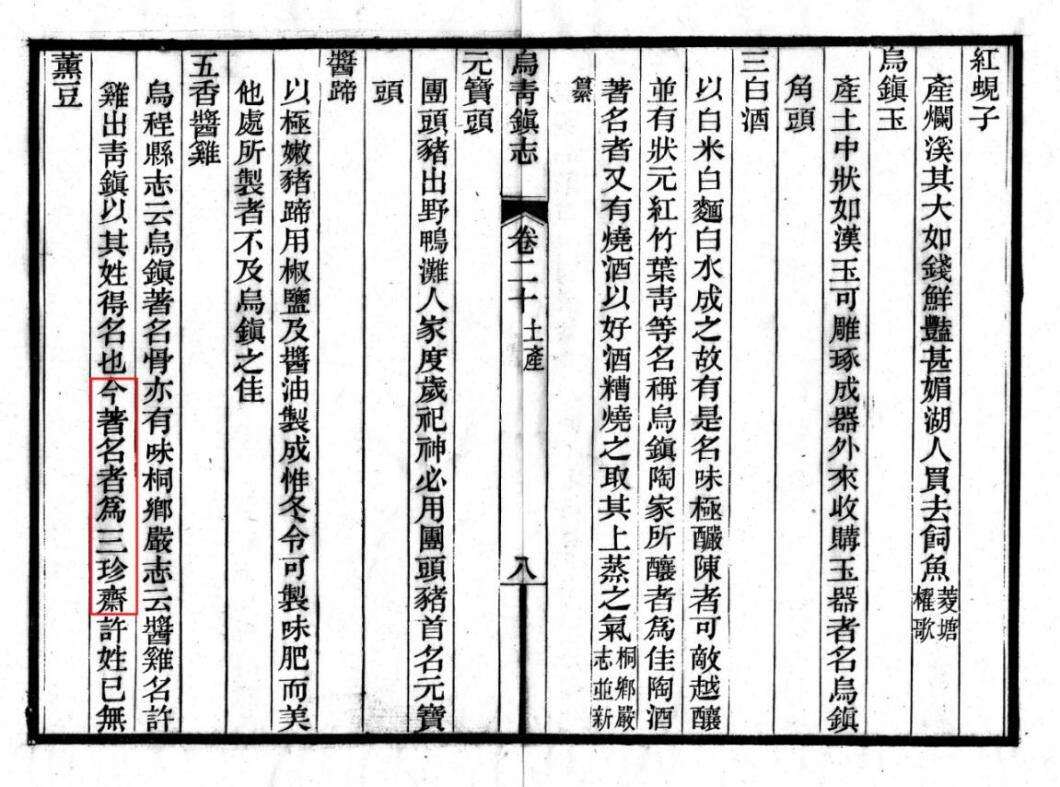 紅蜆子
產爛溪其大如錢鮮豔甚媚湖人買去飼魚菱塘
櫂歌
烏鎭玉
產土中狀如漢玉可雕琢成器外來收購玉器者名烏鎭
角頭
三白酒
以白米白麵白水成之故有是名味極釅陳者可敵越釀
並有狀元紅竹葉靑等名稱烏鎭陶家所釀者爲佳陶酒
著名者又有燒酒以好酒糟燒之取其上蒸之氣桐鄉嚴
志並新
纂
烏靑鎭志 卷二十 土產 八
元寶頭
團頭豬出野鴨灘人家度歲祀神必用團頭豬首名元寶
頭
醬蹄
以極嫩豬蹄用椒鹽及醬油製成惟冬令可製味肥而美
他處所製者不及烏鎭之佳
五香醬雞
烏程縣志云烏鎭著名骨亦有味桐鄉嚴志云醬雞名許
雞出靑鎭以其姓得名也今著名者爲三珍齋許姓已無
薰豆